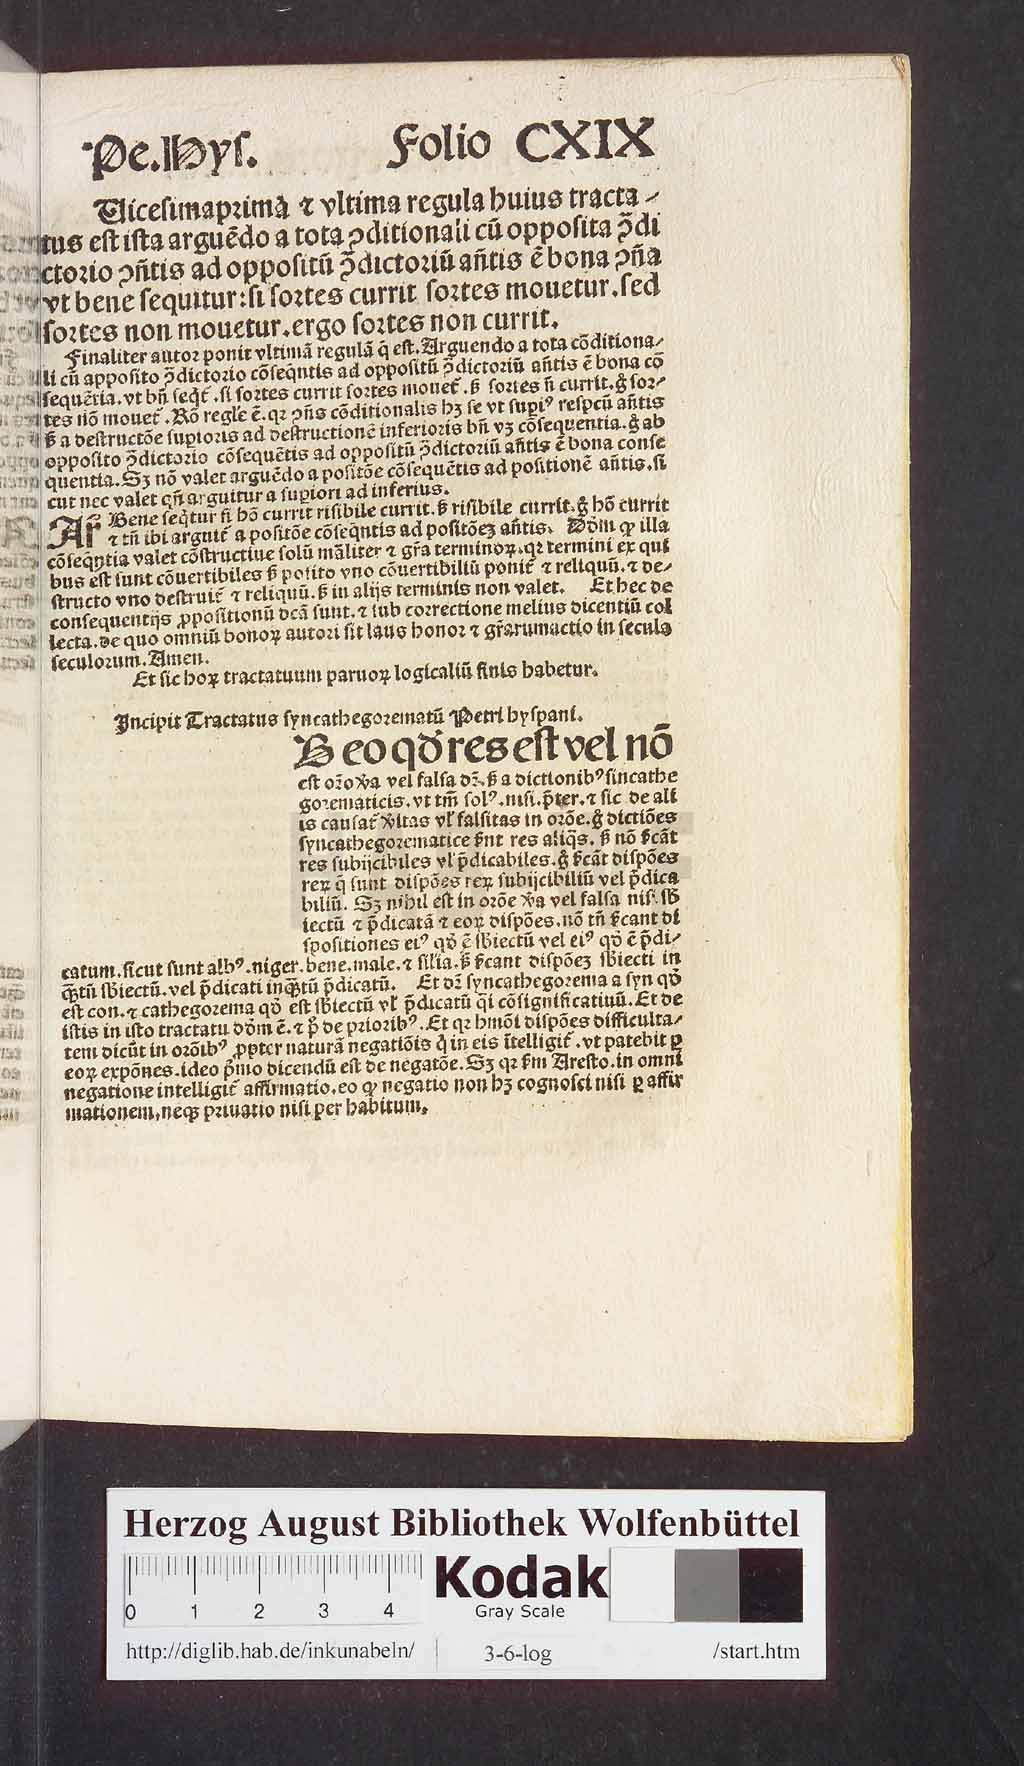 Pe.Hyſ. Folio CXIX
Uiceſimaprima ⁊ vltima regula huius tracta⸗
tus eſt iſta arguẽdo a tota ꝯditionali cũ oppoſita ꝯ̃di
ctorio ꝯñtis ad oppoſitũ ꝯ̃dictoriũ añtis ẽ bona ꝯña
vt bene ſequitur:ſi ſortes currit ſortes mouetur.ſed
ſortes non mouetur.ergo ſortes non currit.
Finaliter autor ponit vltimã regulã q̃ eſt. Arguendo a tota cõditiona⸗
li cũ appoſito ꝯ̃dictorio cõſeqntis ad oppoſitũ ꝯ̃dictoriũ añtis ẽ bona cõ
ſequẽtia.vt bñ ſeqt̃.ſi ſortes currit ſortes mouet̃. ß ſortes ñ currit.g̊ ſor⸗
tes nõ mouet̃. Rõ regſe ẽ.qꝛ ꝯñs cõditionalis hꝫ ſe vt ſupiꝰ reſpcũ añtis
ß a deſtructõe ſuꝑioris ad deſtructionẽ inferioris bñ vꝫ cõſequentia.g̊ ab
oppoſito ꝯ̃dictorio cõſequẽtis ad oppoſitũ ꝯ̃dictoriũ añtis ẽ bona conſe
quentia.Sꝫ nõ valet arguẽdo a poſitõe cõſequẽtis ad poſitionẽ añtis.ſi
cut nec valet qñ arguitur a ſuperiori ad inferius.
Ar̃ Bene ſeq̃tur ſi hõ currit riſibile currit.ß riſibile currit.g̊ hõ currit
⁊ tñ ibi arguit̃ a poſitõe cõſeqntis ad poſitõeꝫ añtis. Dõm ꝙ illa
cõſeqntia valet cõſtructiue ſolũ mãliter ⁊ gr̃a terminoꝝ.qꝛ termini ex qui
bus eſt ſunt cõuertibiles ß poſito vno cõuertibiliũ ponit̃ ⁊ reliquũ.⁊ de⸗
ſtructo vno deſtruit̃ ⁊ reliquũ.ß in alijs terminis non valet. Et hec de
conſequentijs ꝓpoſitionũ dcã ſunt.⁊ ſub correctione melius dicentiũ col
lecta.de quo omniũ bonoꝝ autori ſit laus honor ⁊ gr̃arumactio in ſecula
ſeculorum.Amen.
Et ſic hoꝝ tractatuum paruoꝝ logicaliũ finis habetur.
Incipit Tractatus ſyncathegorematũ Petri hyſpani.
B eo qd̓ res eſt vel nõ
eſt oꝛ̃o v̓a vel falſa dꝛ̃.ß a dictionibꝰ ſincathe
gorematicis.vt tm̃ ſolꝰ.niſi.p̃ter.⁊ ſic de ali
is cauſat̃ v̓itas vl̓ falſitas in orõe.g̊ dictiões
ſyncathegorematice ſ̓nt res aliq̃s.ß nõ ſ̓cãt
res ſubijcibiles vl̓ p̃dicabiles.g̊ ſ̓cãt diſpões
reꝝ q̃ ſunt diſpões reꝝ ſubijcibiliũ vel p̃dica
biliũ. Sꝫ nihil eſt in orõe v̓a vel falſa niſi.ſb̓
iectũ ⁊ p̃dicatã ⁊ eoꝝ diſpões.nõ tñ ſ̓cant di
ſpoſitiones eiꝰ qd̓ ẽ ſb̓iectũ vel eiꝰ qd̓ ẽ p̃di⸗
catum.ſicut ſunt albꝰ.niger.bene.male.⁊ ſil̓ia.ß ſ̓cant diſpõeꝫ ſb̓iecti in
qͣtũ ſb̓iectũ.vel p̃dicati inqͣtũ p̃dicatũ. Et dꝛ̃ ſyncathegorema a ſyn qd̓
eſt con.⁊ cathegorema qd̓ eſt ſb̓iectũ vl̓ p̃dicatũ q̃i cõſignificatiuũ.Et de
iſtis in iſto tractatu dõm ẽ.⁊ p̊ de prioribꝰ.Et qꝛ hmõi diſpões difficulta⸗
tem dicũt in orõibꝰ ꝓpter naturã negatiõis q̃ in eis ĩtelligit̃.vt patebit ꝑ
eoꝝ expõnes.ideo p̃mo dicendũ eſt de negatõe. Sꝫ qꝛ ſ̓m Areſto.in omni
negatione intelligit̃ affirmatio.eo ꝙ negatio non hꝫ cognoſci niſi ꝑ affir
mationem,neqꝫ priuatio niſi per habitum.
Herzog August Bibliothek Wolfenbüttel
0 1 2 3 4
Kodak
Gray Scale
http://diglib.hab.de/inkunabeln/ 3-6-log /start.htm